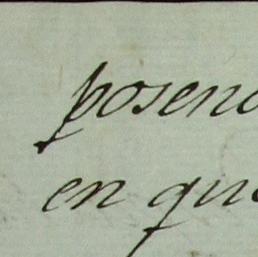 posend
en que